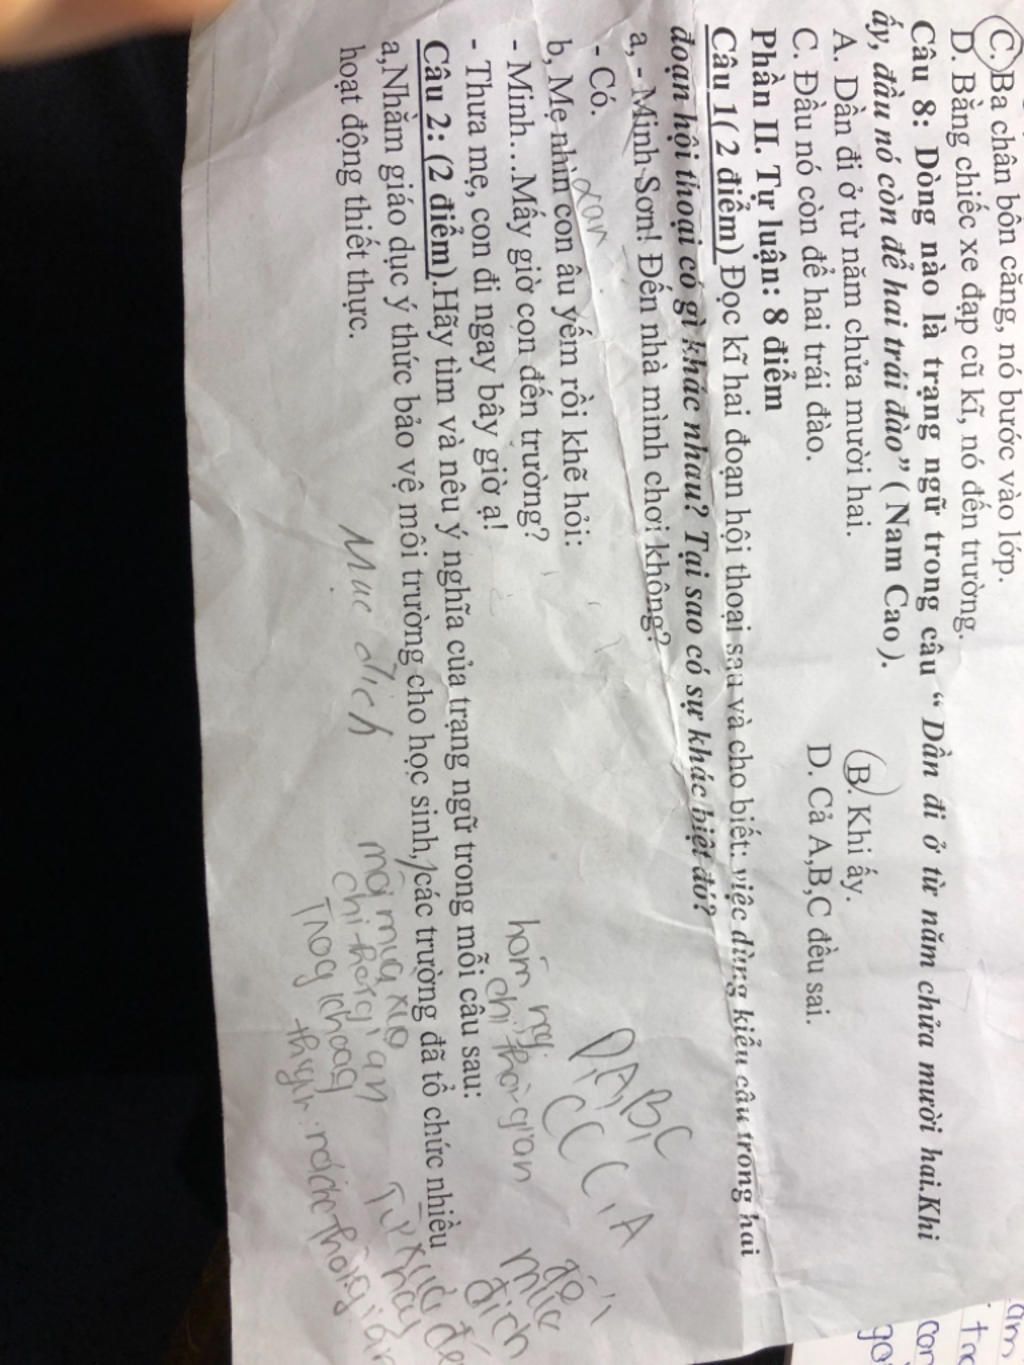 C. Ba chân bôn căng, nó bước vào lớp.
D. Bằng chiếc xe đạp cũ kĩ, nó đến trường.
Câu 8: Dòng nào là trạng ngữ trong câu “ Dần đi ở từ năm chửa mười hai.Khi
ấy, đầu nó còn để hai trái đào” ( Nam Cao ).
A. Dần đi ở từ năm chửa mười hai. B. Khi ấy.
C. Đầu nó còn để hai trái đào. D. Cả A,B,C đều sai.
Phần II. Tự luận: 8 điểm
Câu 1( 2 điểm) Đọc kĩ hai đoạn hội thoại sau và cho biết: việc dùng kiểu câu trong hai
đoạn hội thoại có gì khác nhau? Tại sao có sự khác biệt đó?
a, - Minh Son! Đến nhà mình chơi không?
Lan
- Có.
D,A,B,C
C C C, A
b, Mẹ nhìn con âu yếm rồi khẽ hỏi:
- Minh…Mấy giờ con đến trường?
- Thưa mẹ, con đi ngay bây giờ ạ!
hôm
chỉ thời gian
để
mục
đích
Câu 2: (2 điểm).Hãy tìm và nêu ý nghĩa của trạng ngữ trong mỗi câu sau:
a,Nhằm giáo dục ý thức bảo vệ môi trường cho học sinh, các trường đã tổ chức nhiều
hoạt động thiết thực.
Mục đích
mỗi mùa